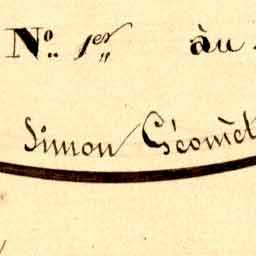 No. 1er àu
Simon Géomèt